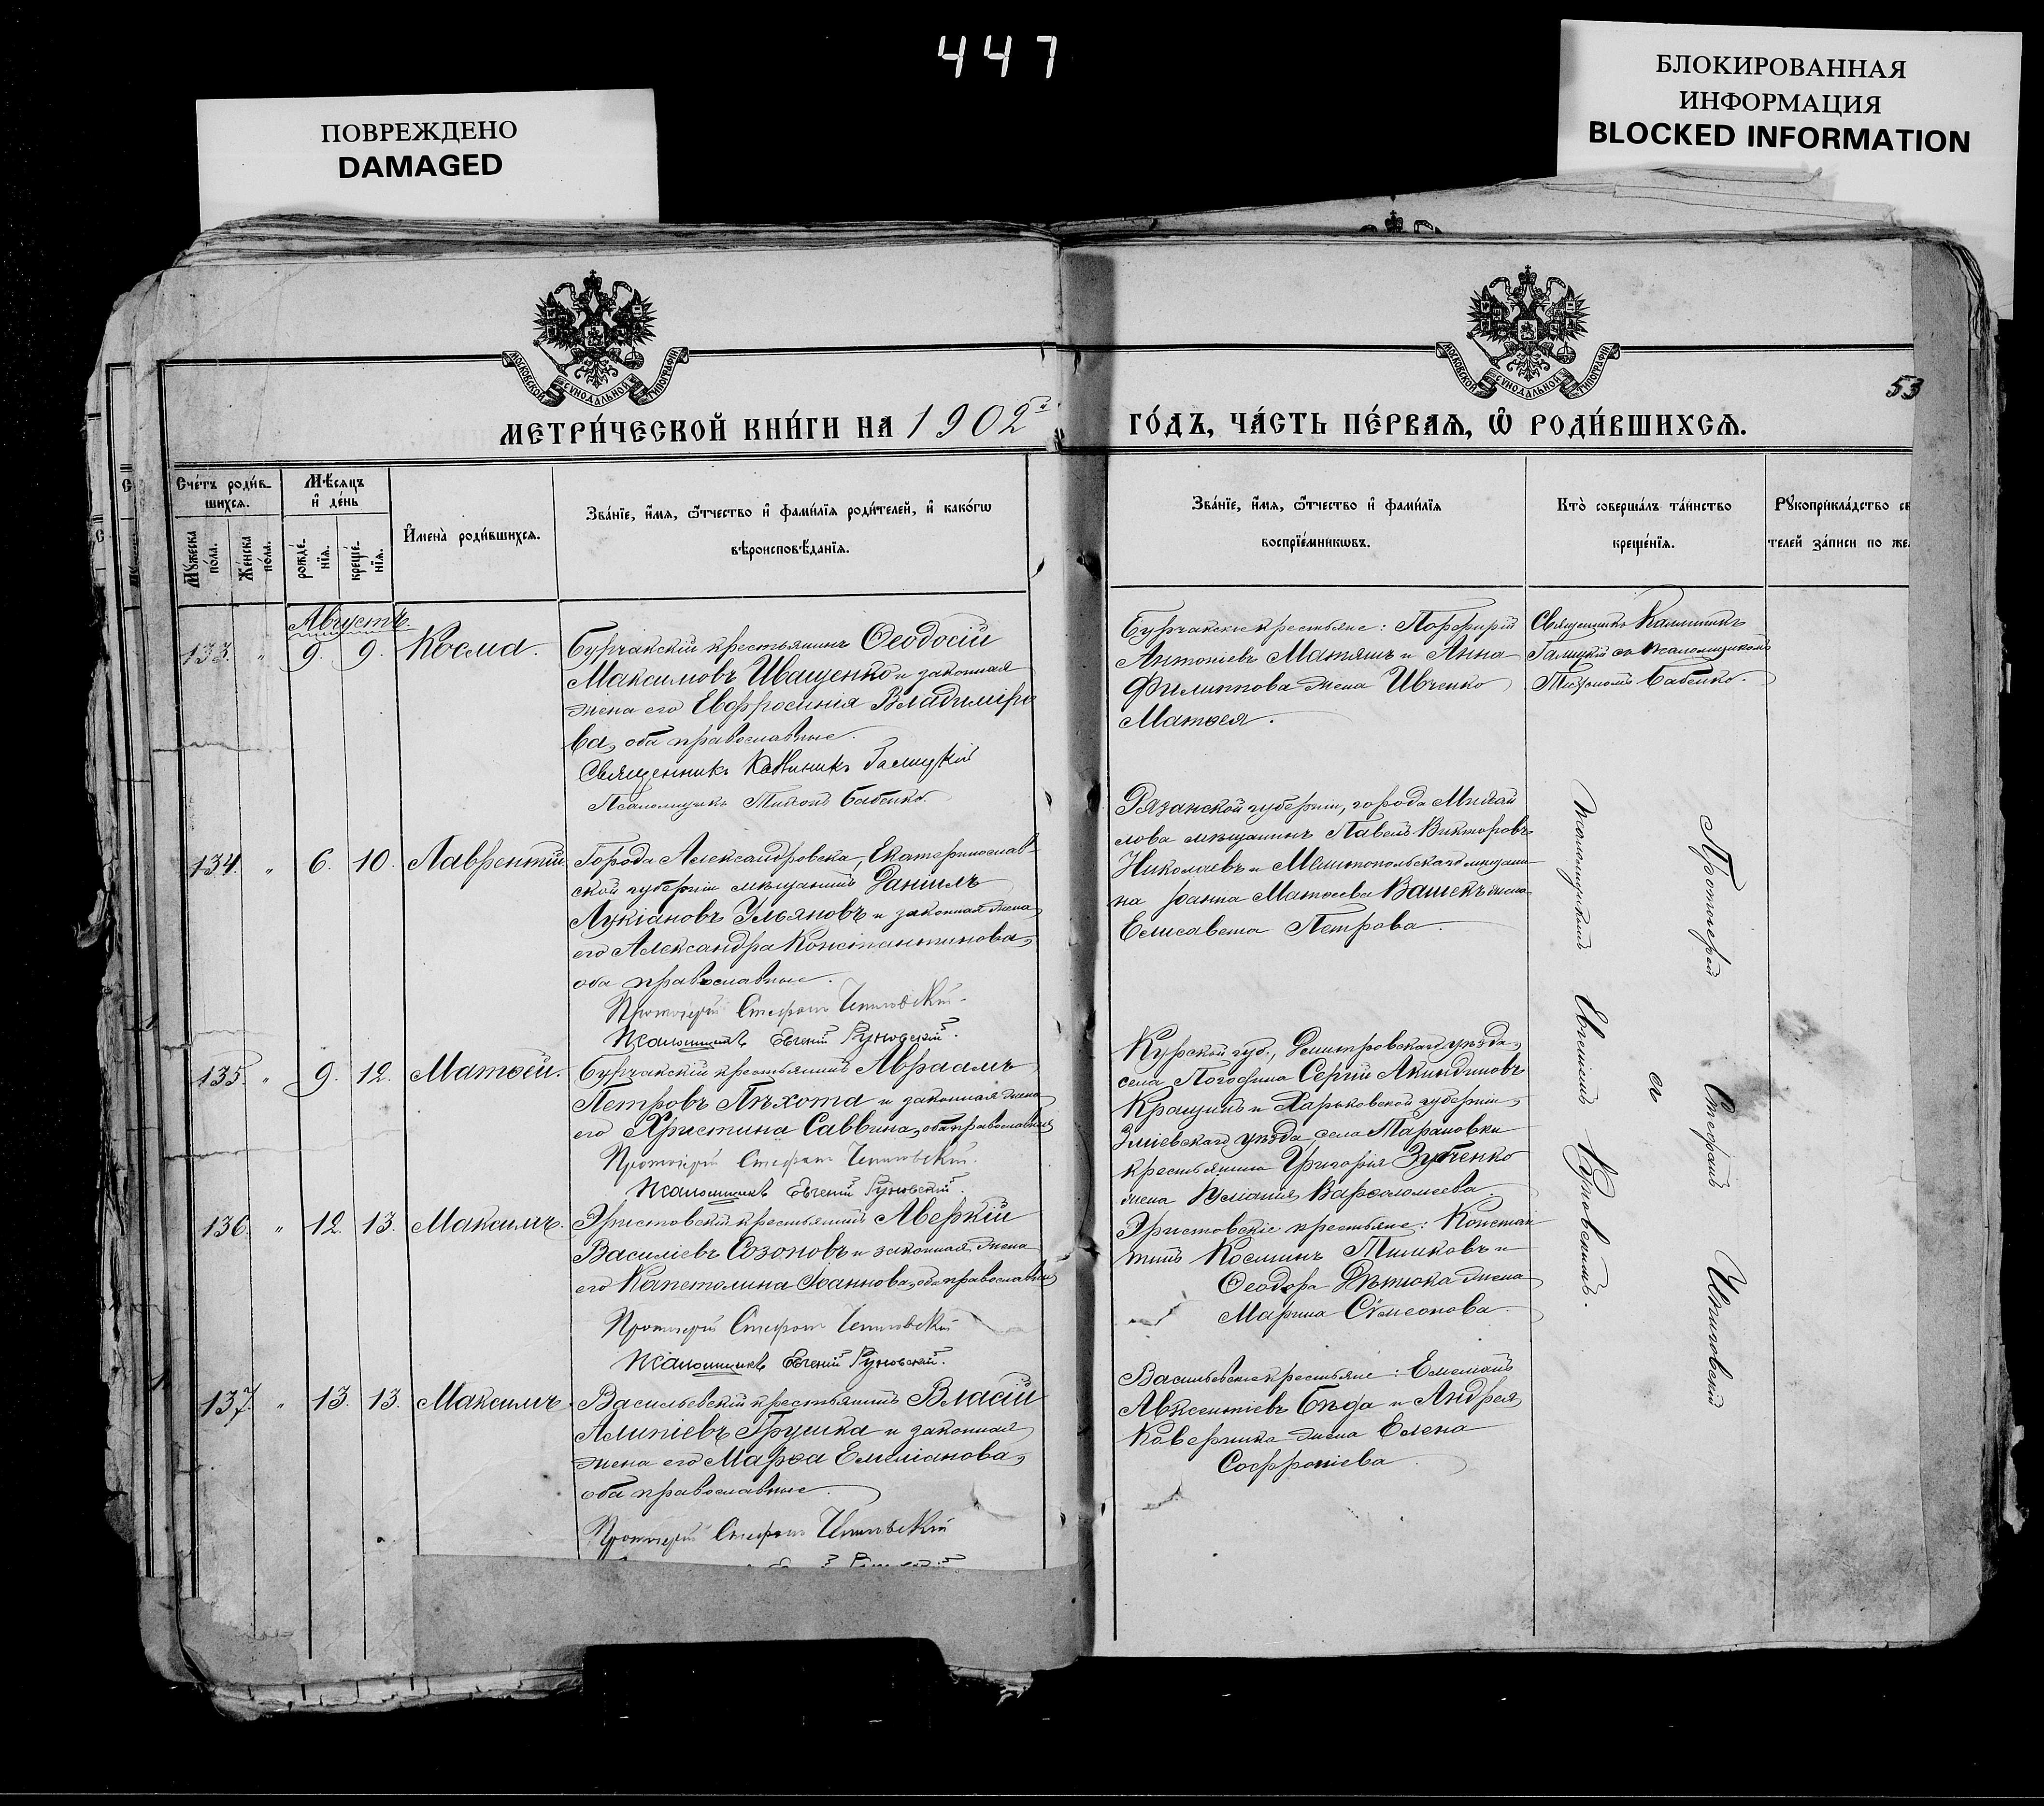 447
ПОВРЕЖДЕНО
DAMAGED
БЛОКИРОВАННАЯ
ИНФОРМАЦИЯ
BLOCKED INFORMATION
МОСКОВСКОЙ СѴНОДАЛЬНОЙ ТИПОГРАФІИ
МОСКОВСКОЙ СѴНОДАЛЬНОЙ ТИПОГРАФІИ
53
МЕТРИ́ЧЕСКОЙ КНИ́ГИ НА 1902й ГО́ДЪ, ЧА́СТЬ ПЕ́РВАѦ, Ѡ҆ РОДИ́ВШИХСѦ.
Сче́тъ роди́в-
шихсѧ.
Мꙋ́жеска по́ла.
Же́нска по́ла.
Мѣ́сѧцъ
и҆ де́нь
рожде́-
нїѧ.
креще́-
нїѧ.
И҆мена̀ роди́вшихсѧ.
Зва́нїе, и҆́мѧ, ѻ҆́тчество и҆ фами́лїѧ роди́телей, и҆ како́гѡ
вѣроисповѣ́данїѧ.
Зва́нїе, и҆́мѧ, ѻ҆́тчество и҆ фами́лїѧ
воспрїе́мникѡвъ.
Кто̀ соверша́лъ та́инство
креще́нїѧ.
Рꙋкоприкла́дство св
телей за́писи по же
Августъ.
133. " 9. 9. Косма.
Бурчакскій крестьянинъ Ѳеодосій
Максимовъ Иващенко и законная
жена его Евфросинія Владимiро
ва, оба православные.
Священникъ Калиникъ Галицкій
Псаломщикъ Тихонъ Бабенко.
Бурчакскіе крестьяне: Порфирій
Антоніевъ Матяшъ и Анна
Филиппова жена Ивченко
Матѳея.
Священникъ Калиникъ
Галицкій съ псаломщикомъ
Тихономъ Бабенко.
134. " 6. 10. Лаврентій.
Города Александровска, Екатеринослав-
ской губерніи мѣщанинъ Даніилъ
Лукіановъ Ульяновъ и законная жена
его Александра Константинова,
оба православные.
Протоіерей Стефанъ
Псаломщикъ Евгеній Руновскій.
Рязанской губерніи, города Михай
лова мѣщанинъ Павелъ Викторовъ
Николаевъ и Мелитопольскаго мѣщани
на Іоанна Матѳеева Вашекъ жена
Елисавета Петрова.
135. " 9. 12. Матѳей.
Бурчакскій крестьянинъ Авраамъ
Петровъ Пѣхота и законная жена
его Христина Саввина, оба православные
Протоіерей Стефанъ
Псаломщикъ Евгеній Руновскій.
Курской губ., Дмитровскаго уѣзда,
села Погодина Сергій Акиндиновъ
и Харьковской губерніи,
Зміевскаго уѣзда, села Тарановки
крестьянина Григорія Зубченко
жена Іуліанія Варѳоломеева.
136. " 12. 13. Максимъ.
Эристовскій крестьянинъ Аверкій
Василіевъ Созоновъ и законная жена
его Капетолина Іоаннова, оба православные
Протоіерей Стефанъ
Псаломщикъ Евгеній Руновскій.
Эристовскіе крестьяне: Констан
тинъ Косминъ и
Ѳеодора жена
Марина Сѵмеонова.
137. " 13. 13. Максимъ.
Васильевскій крестьянинъ Власій
Алипіевъ Грушка и законная
жена его Марѳа Емиліанова,
оба православные.
Протоіерей Стефанъ
Васильевскіе крестьяне: Емеліанъ
Авксентіевъ Бѣда и Андрея
Каверника жена Елена
Софроніева.
Протоіерей Стефанъ
съ
псаломщикомъ Евгеніемъ Руновскимъ.